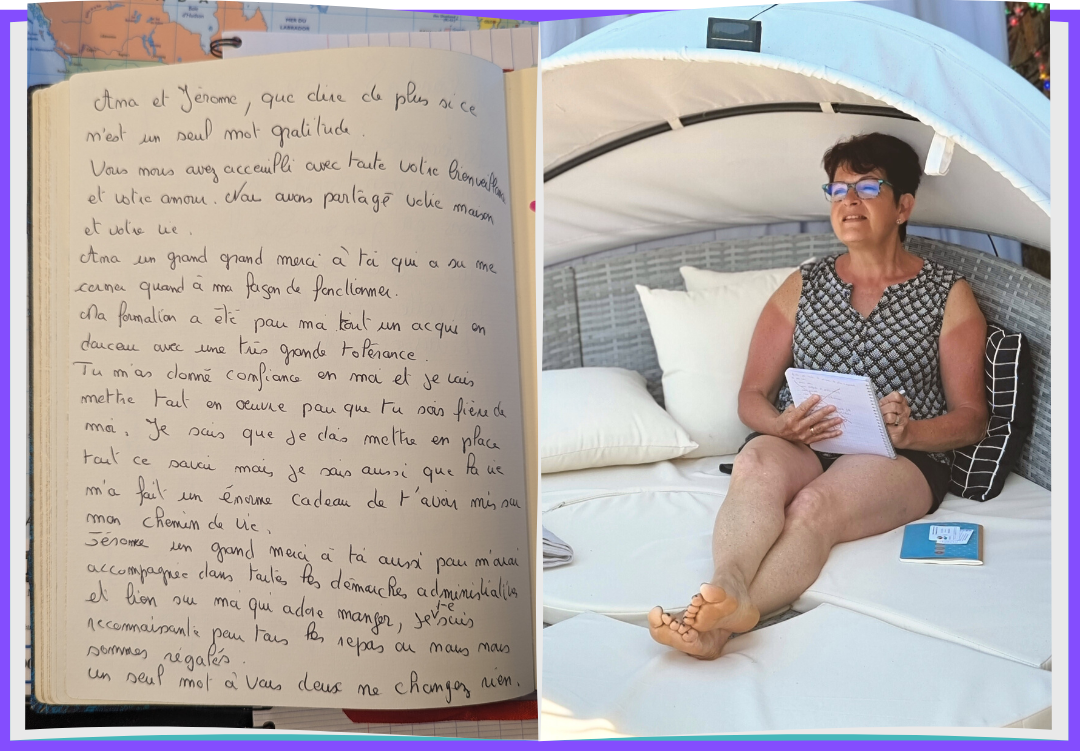 MER DU
LABRADOR
Ama et Jérome, que dire de plus si ce
n'est un seul mot gratitude.
Vous nous avez acceuilli avec toute votre bienveillance
et votre amour. Nous avons partagé votre maison
et votre vie.
Ama un grand grand merci à toi qui a su me
cerner quand à ma façon de fonctionner.
Ma formation a été pour moi tout un acquis en
douceur avec une très grande tolérance.
Tu m'as donné confiance en moi et je vais
mettre tout en oeuvre pour que tu sois fière de
moi. Je sais que je dois mettre en place
tout ce savoir mais je sais aussi que la vie
m'a fait un énorme cadeau de t'avoir mis sur
mon chemin de vie.
Jérome un grand merci à toi aussi pour m'avoir
accompagnée dans toutes les démarches administratives
et bien sur moi qui adore manger, je te suis
reconnaissante pour tous les repas ou nous nous
sommes régalés.
Un seul mot à vous deux ne changez rien.